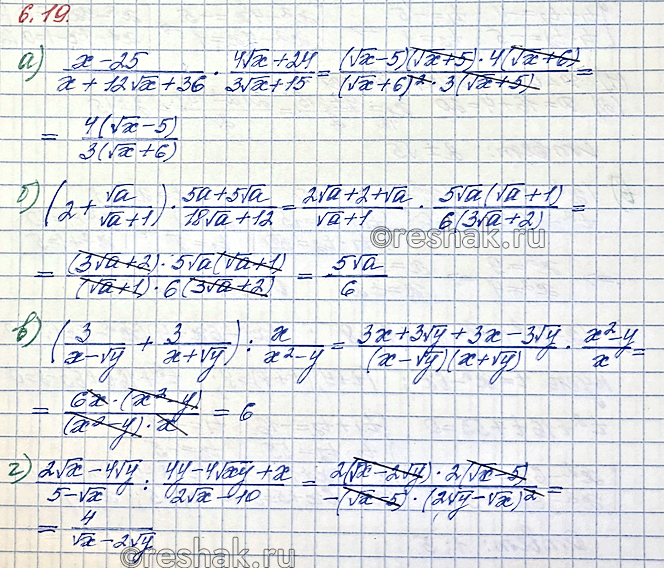 6.19.
а) (x-25)/(x+12√x+36) · (4√x+24)/(3√x+15) = ((√x-5)(√x+5)·4(√x+6))/((√x+6)²·3(√x+5)) =
= (4(√x-5))/(3(√x+6))
б) (2+√a/(√a+1)) · (5a+5√a)/(18√a+12) = (2√a+2+√a)/(√a+1) · (5√a(√a+1))/(6(3√a+2)) =
©reshak.ru
= ((3√a+2)·5√a(√a+1))/((√a+1)·6(3√a+2)) = 5√a/6
в) (3/(x-√y) + 3/(x+√y)) : x/(x²-y) = (3x+3√y+3x-3√y)/((x-√y)(x+√y)) · (x²-y)/x =
= (6x·(x²-y))/((x²-y)·x) = 6
г) (2√x-4√y)/(5-√x) : (4y-4√xy+x)/(2√x-10) = (2(√x-2√y)·2(√x-5))/(-(√x-5)·(2√y-√x)²) =
= 4/(√x-2√y)
©reshak.ru